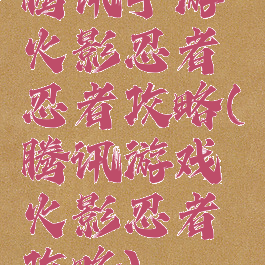 腾讯手游
火影忍者
忍者攻略(
腾讯游戏
火影忍者
攻略)